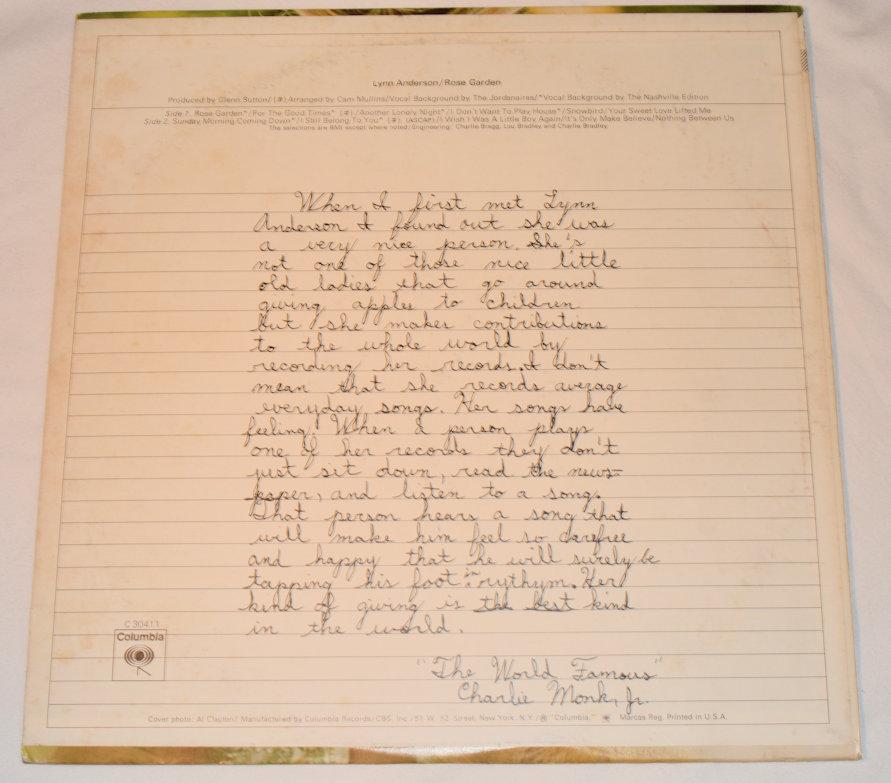 Lynn Anderson/Rose Garden
Produced by Glenn Sutton/(#) Arranged by Cam Mullins/Vocal Background by The Jordanaires/*Vocal Background by The Nashville Edition
Side 1. Rose Garden*/For The Good Times* (#)/Another Lonely Night*/I Don't Want To Play House*/Snowbird/Your Sweet Love Lifted Me
Side 2. Sunday Morning Coming Down*/I Still Belong To You* (#), (ASCAP)/I Wish I Was A Little Boy Again/It's Only Make Believe/Nothing Between Us
The selections are BMI except where noted/Engineering: Charlie Bragg, Lou Bradley and Charlie Bradley
When I first met Lynn
Anderson I found out she was
a very nice person. She's
not one of those nice little
old ladies that go around
giving apples to children
but she makes contributions
to the whole world by
recording her records. I don't
mean that she records average
everyday songs. Her songs have
feeling. When a person plays
one of her records they don't
just sit down, read the news-
paper, and listen to a song.
That person hears a song that
will make him feel so carefree
and happy that he will surely be
tapping his foot in rythym. Her
kind of giving is the best kind
in the world.
"The World Famous"
Charlie Monk, Jr.
C 30411
Columbia
Cover photo: Al Clayton/ Manufactured by Columbia Records/CBS, Inc./51 W. 52 Street, New York, N.Y./® "Columbia," Marcas Reg. Printed in U.S.A.